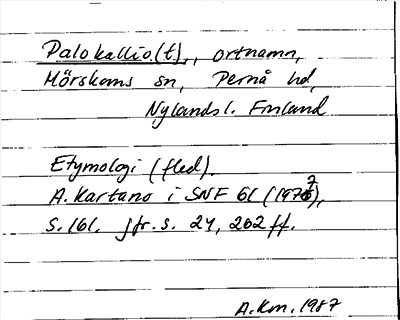 Palokallio(t), ortnamn,
Mörskoms sn, Pernå hd,
Nylands l. Finland
Etymologi (fled).
A. Kartano i SNF 61 (1977),
s. 161. jfr. s. 24, 202 ff.
A. Km. 1987